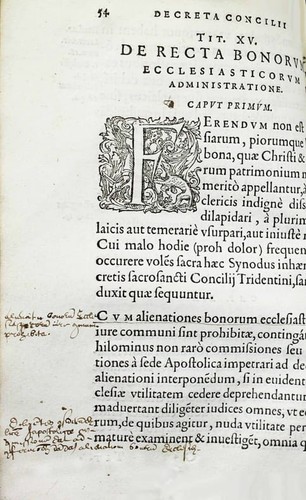 54 DECRETA CONCILII
TIT. XV.
DE RECTA BONORVM
ECCLESIASTICORVM
ADMINISTRATIONE.
CAPVT PRIMVM.
FERENDVM non est
siarum, piorumque
bona, quæ Christi &
rum patrimonium m
meritò appellantur, à
clericis indignè diss
dilapidari, à plurim
laicis aut temerariè vsurpari, aut iniustè r
Cui malo hodie (proh dolor) frequen
occurere volẽs sacra hæc Synodus inhær
cretis sacrosancti Concilij Tridentini, san
duxit quæ sequuntur.
CVM alienationes bonorum ecclesiast
iure communi sint prohibitæ, contingat
hilominus non rarò commissiones seu
tiones à sede Apostolica impetrari ad dec
alienationi interponẽdum, si in euiden
clesiæ vtilitatem cedere deprehendantur
maduertant diligẽter iudices omnes, vt eo
rum, de quibus agitur, nuda vtilitate per
maturè examinent & inuestigẽt, omnia q